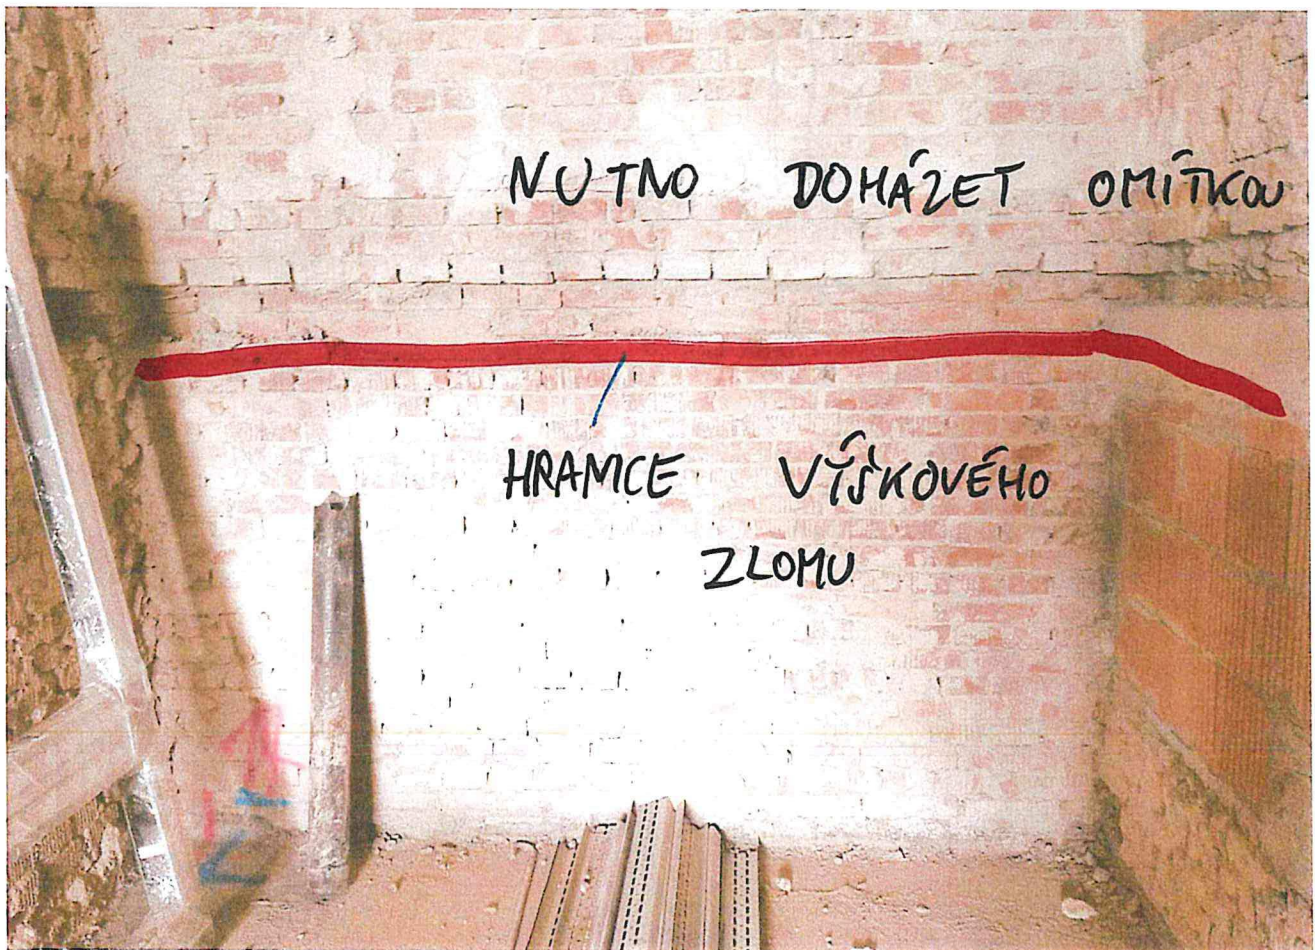 NUTNO DOHÁZET OMÍTKOU
HRANICE VÝŠKOVÉHO
ZLOMU